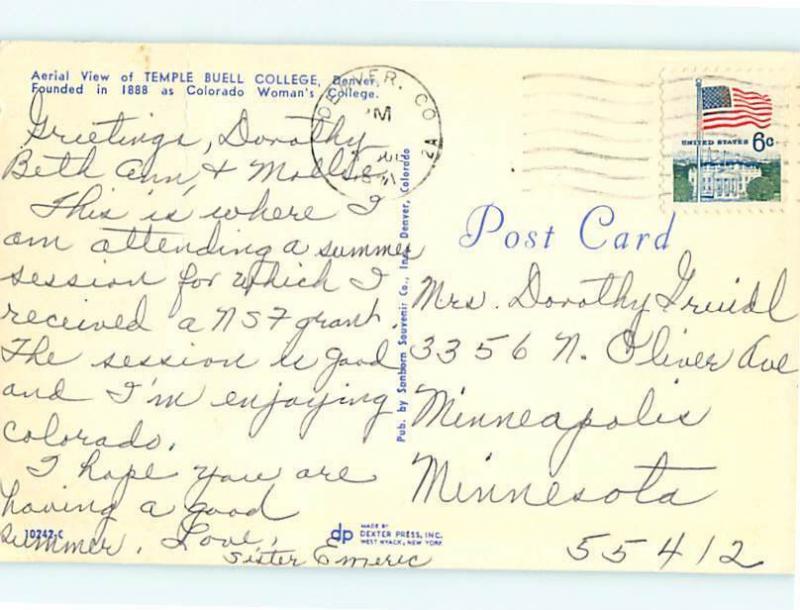 Aerial View of TEMPLE BUELL COLLEGE, Denver,
Founded in 1888 as Colorado Woman's College.
Greetings, Dorothy
Beth Ann, + Mollie,
This is where I
am attending a summer
session for which I
received a NSF grant.
The session is good
and I'm enjoying
Colorado.
I hope you are
having a good
summer. Love,
Sister Emeric
10242-C
dp
MADE BY
DEXTER PRESS, INC.
WEST NYACK, NEW YORK
Pub. by Sanborn Souvenir Co., Inc. Denver, Colorado
DENVER, CO
UNITED STATES 6c
Post Card
Mrs. Dorothy
3356 N. Oliver Ave
Minneapolis
Minnesota
55412